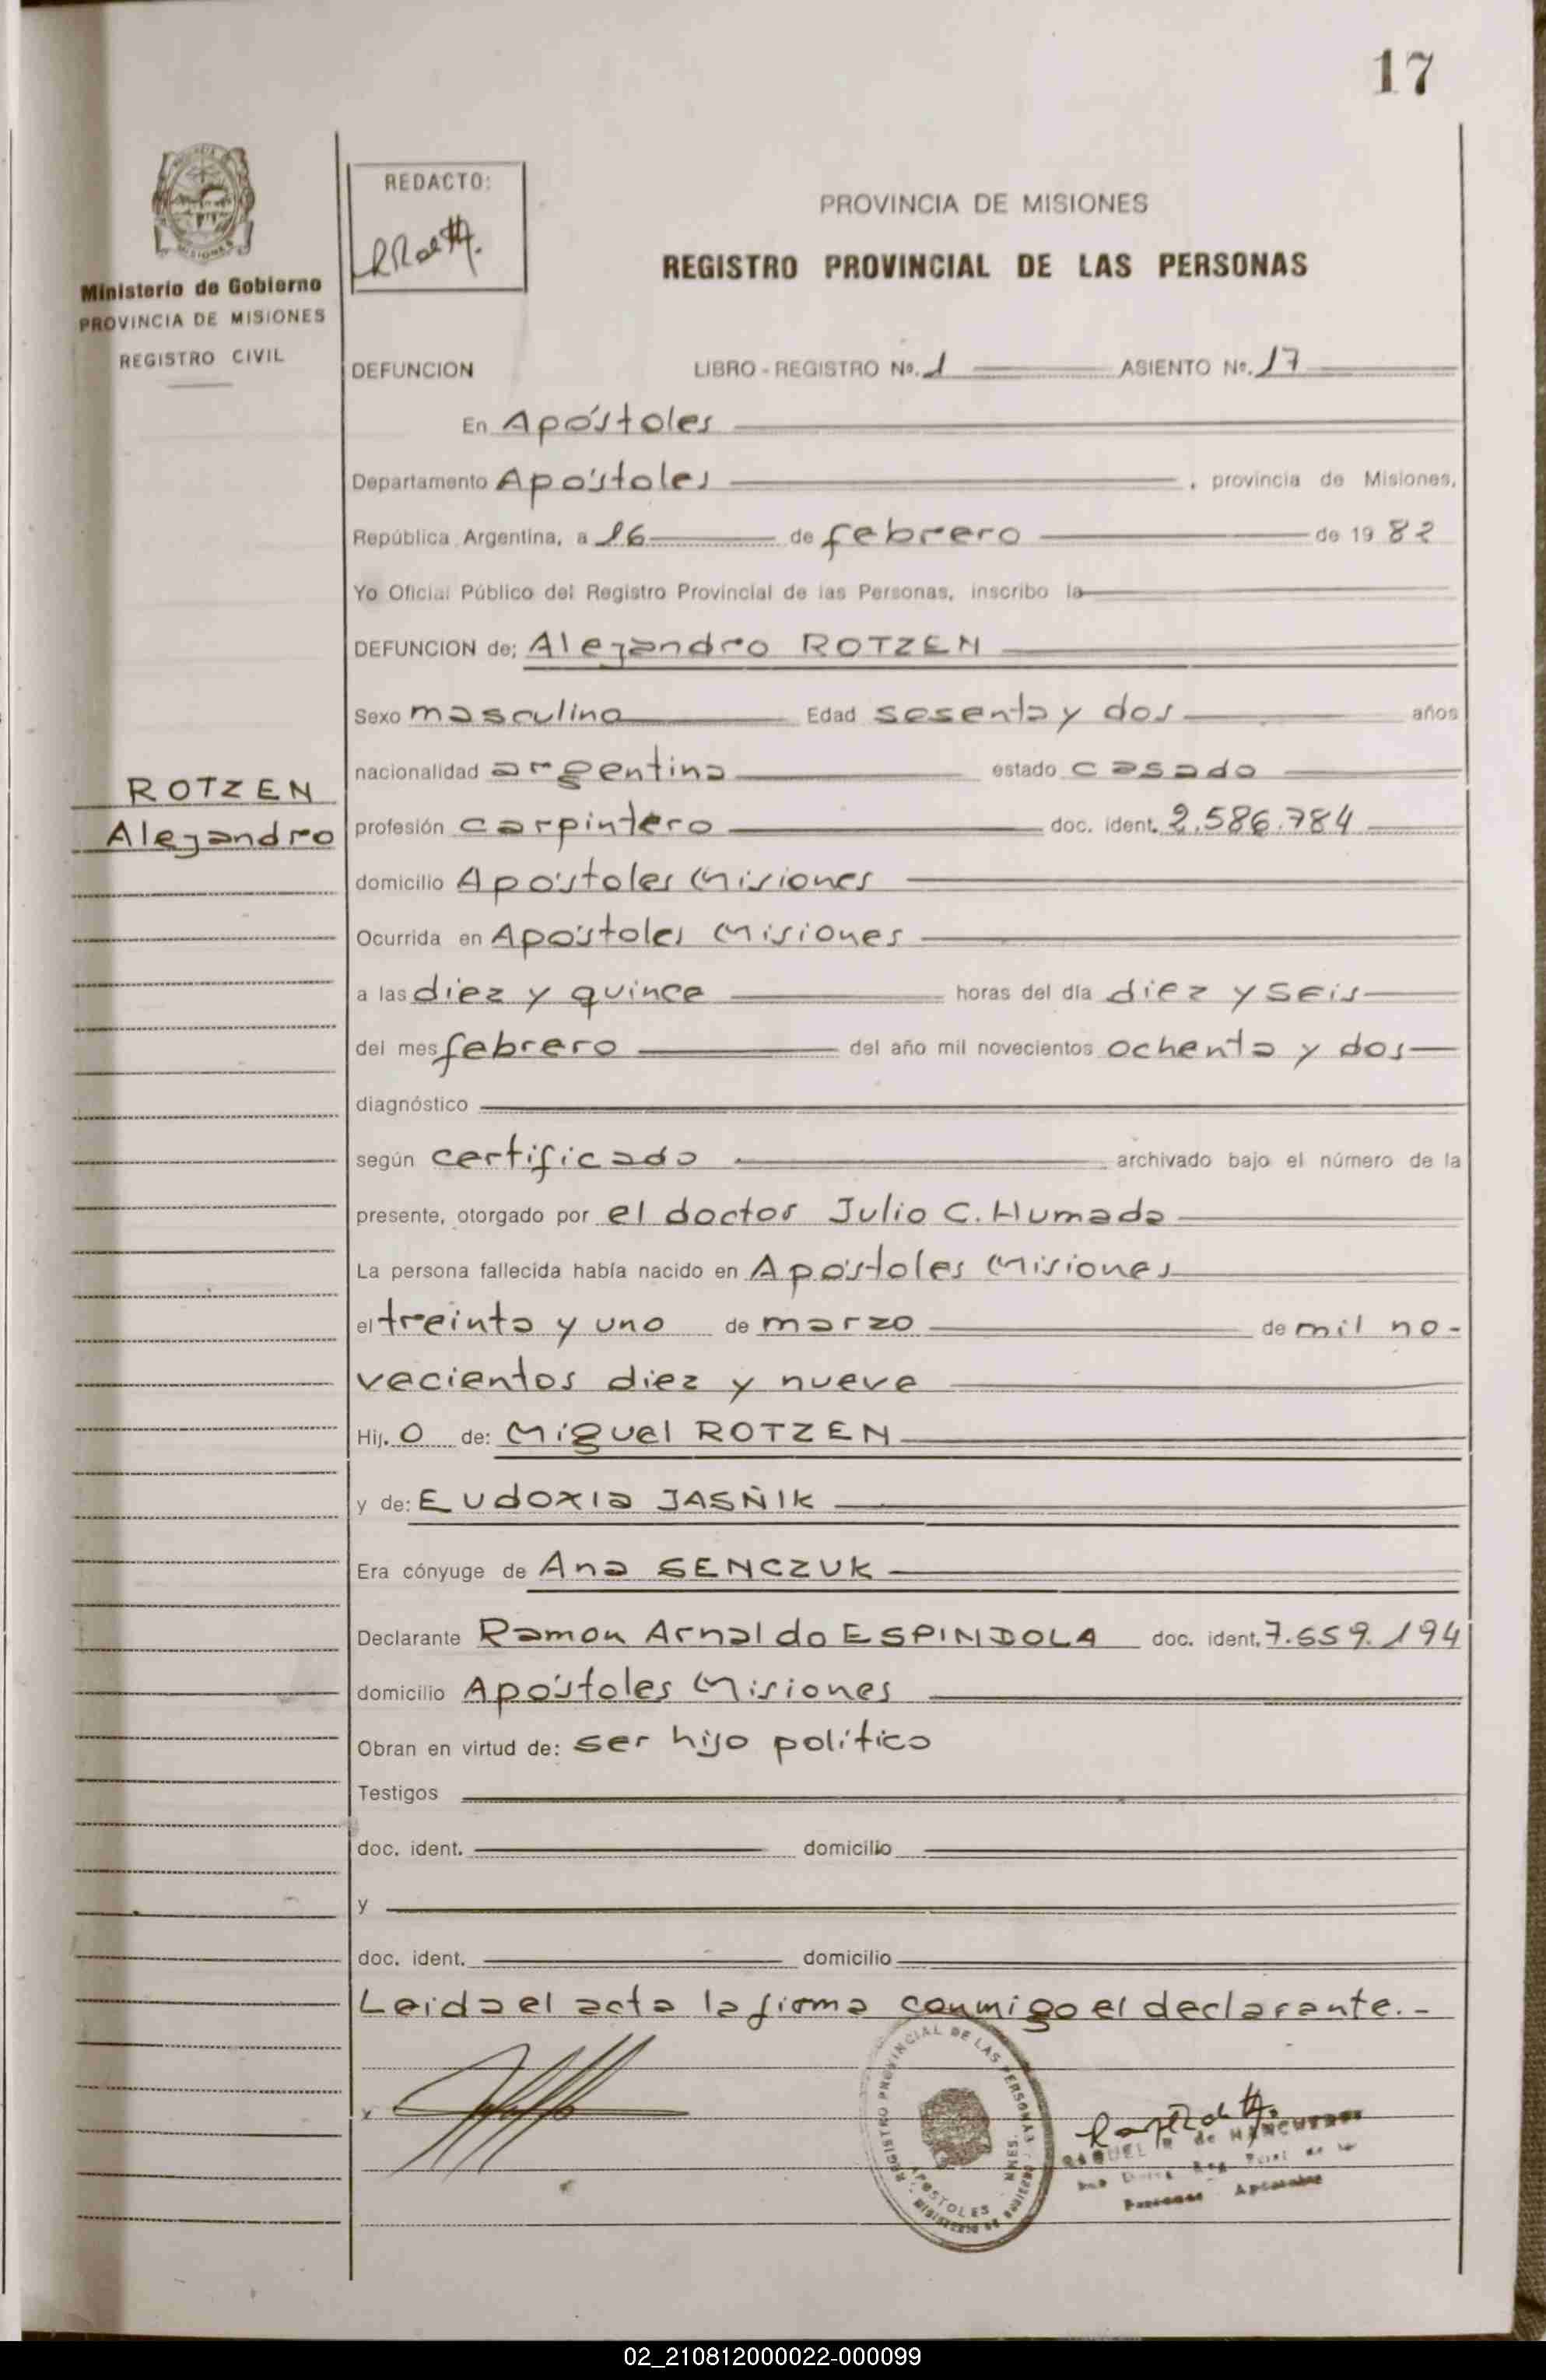 17
REDACTO:
PROVINCIA DE MISIONES
REGISTRO PROVINCIAL DE LAS PERSONAS
Ministerio de Gobierno
PROVINCIA DE MISIONES
REGISTRO CIVIL
DEFUNCION LIBRO - REGISTRO No. 1 ASIENTO No. 17
En Apóstoles
Departamento Apóstoles , provincia de Misiones,
República Argentina, a 16 de febrero de 19 82
Yo Oficial Público del Registro Provincial de las Personas, inscribo la
DEFUNCION de; Alejandro ROTZEN
Sexo masculino Edad sesenta y dos años
nacionalidad argentina estado casado
ROTZEN
Alejandro
profesión carpintero doc. ident. 2.586.784
domicilio Apóstoles Misiones
Ocurrida en Apóstoles Misiones
a las diez y quince horas del día diez y seis
del mes febrero del año mil novecientos ochenta y dos
diagnóstico
según certificado archivado bajo el número de la
presente, otorgado por el doctor Julio C. Humada
La persona fallecida había nacido en Apóstoles Misiones
el treinta y uno de marzo de mil no-
vecientos diez y nueve
Hij. O de: Miguel ROTZEN
y de: Eudoxia JASÑIK
Era cónyuge de Ana SENCZUK
Declarante Ramon Arnaldo ESPINDOLA doc. ident. 7.659.194
domicilio Apóstoles Misiones
Obran en virtud de: ser hijo político
Testigos
doc. ident. domicilio
y
doc. ident. domicilio
Leida el acta la firma conmigo el declarante.-
x
REGISTRO PROVINCIAL DE LAS PERSONAS
APOSTOLES - MNES.
MINISTERIO DE GOBIERNO
RAQUEL de
Personas Apóstoles
02_210812000022-000099